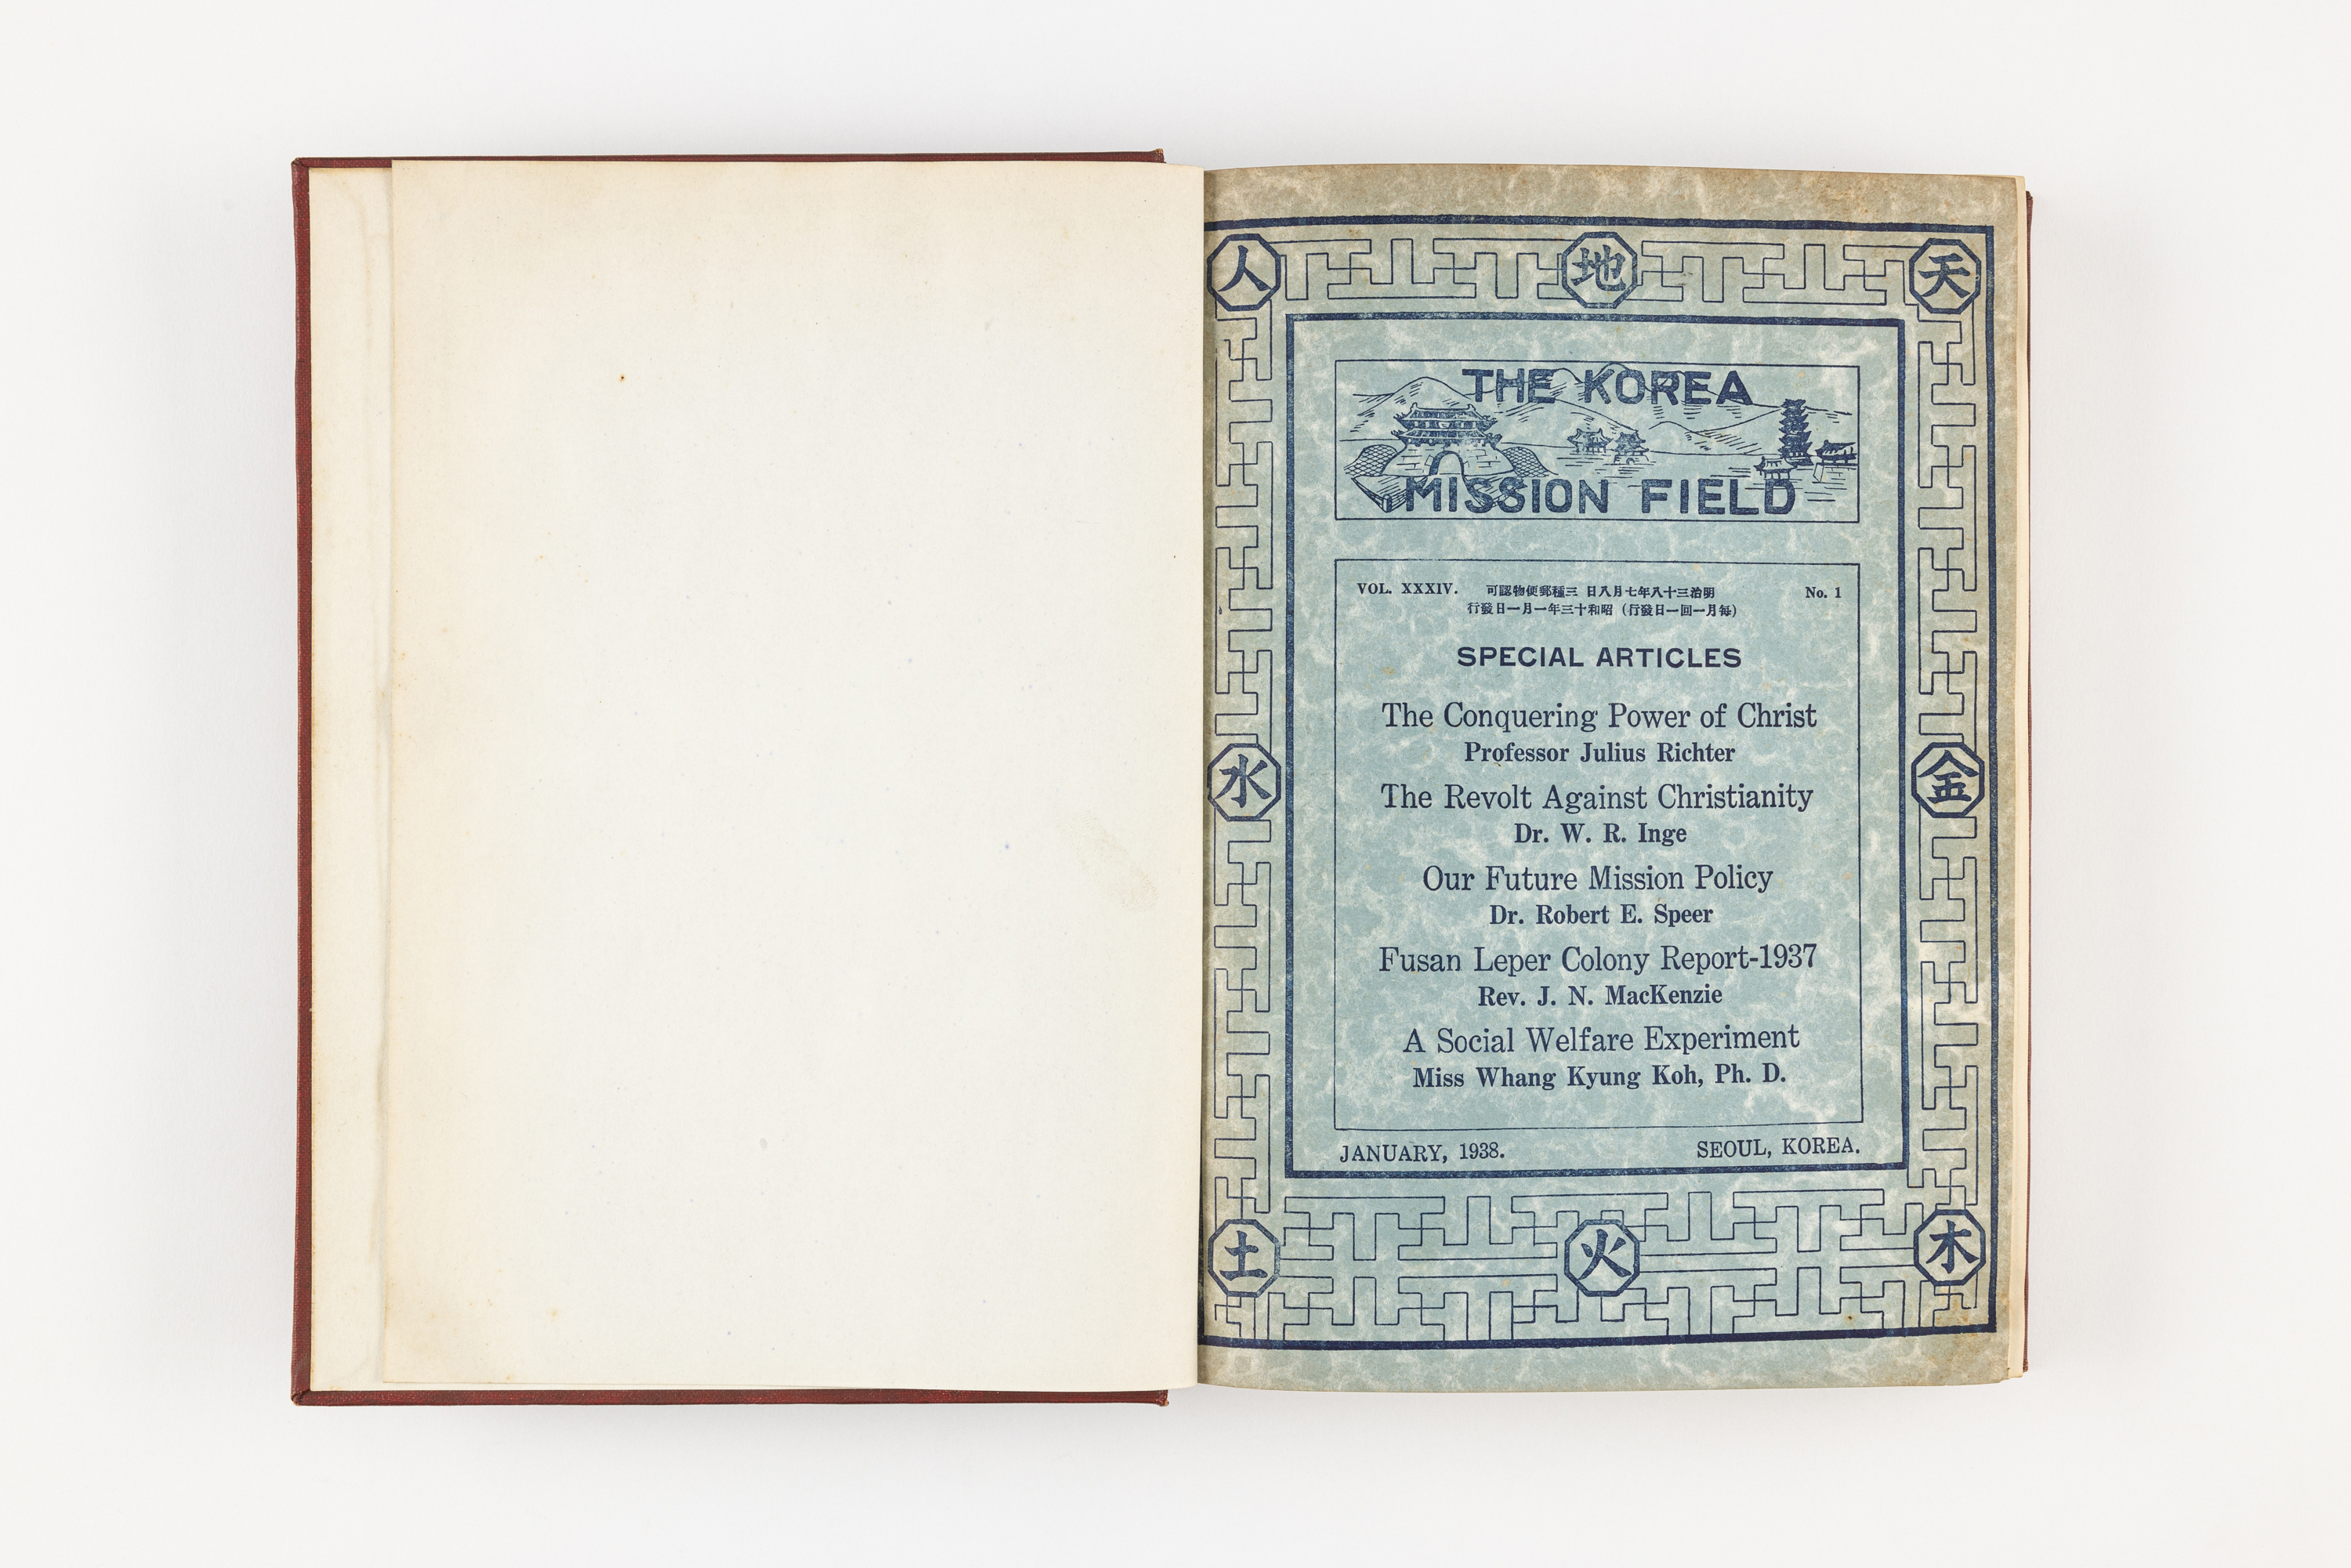 天 地 人
THE KOREA
MISSION FIELD
VOL. XXXIV.
明治三十八年七月八日 三種郵便物認可
(每月一回一日發行) 昭和十三年一月一日發行
No. 1
SPECIAL ARTICLES
The Conquering Power of Christ
Professor Julius Richter
The Revolt Against Christianity
Dr. W. R. Inge
Our Future Mission Policy
Dr. Robert E. Speer
Fusan Leper Colony Report-1937
Rev. J. N. MacKenzie
A Social Welfare Experiment
Miss Whang Kyung Koh, Ph. D.
JANUARY, 1938. SEOUL, KOREA.
金 水
木 火 土